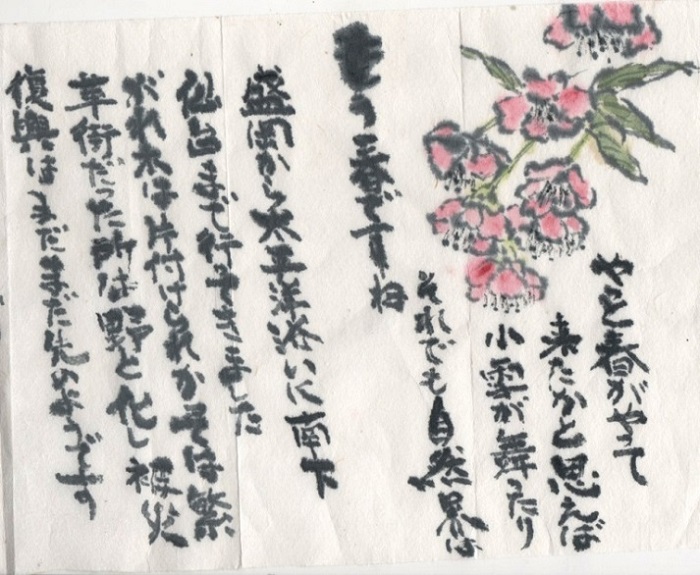 やっと春がやって
来たかと思えば
小雪が舞ったり
それでも自然界は
もう春ですね
盛岡から太平洋沿いに南下
仙台まで行ってきました
がれ木は片付けられかつては繁
華街だった所は野と化し 被災
復興はまだまだ先のようです